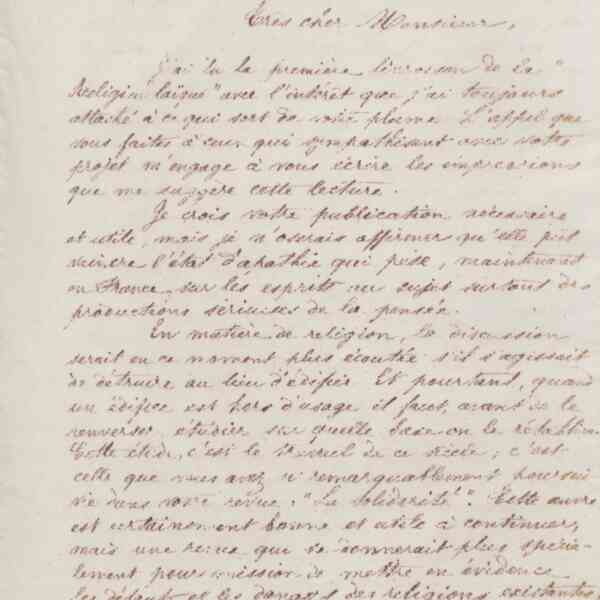 Très cher Monsieur,
J'ai lu la première livraison de la "
Religion laïque" avec l'intérêt que j'ai toujours
attaché à ce qui sort de votre plume. L'appel que
vous faites à ceux qui sympathisent avec votre
projet m'engage à vous écrire les impressions
que me suggère cette lecture.
Je crois votre publication nécessaire
et utile, mais je n'oserais affirmer qu'elle pût
vaincre l'état d'apathie qui pèse, maintenant
en France, sur les esprits au sujet surtout des
productions sérieuses de la pensée.
En matière de religion, la discussion
serait en ce moment plus écoutée s'il s'agissait
de détruire au lieu d'édifier. Et pourtant, quand
un édifice est hors d'usage il faut, avant de le
renverser, étudier sur quelle base on le rétablira.
Cette étude, c'est le travail de ce siècle; c'est
celle que vous avez si remarquablement poursui-
vie dans votre revue "La Solidarité". Cette œuvre
est certainement bonne et utile à continuer,
mais une revue qui se donnerait plus spécia-
lement pour mission de mettre en évidence
les défauts et les dangers des religions existantes,